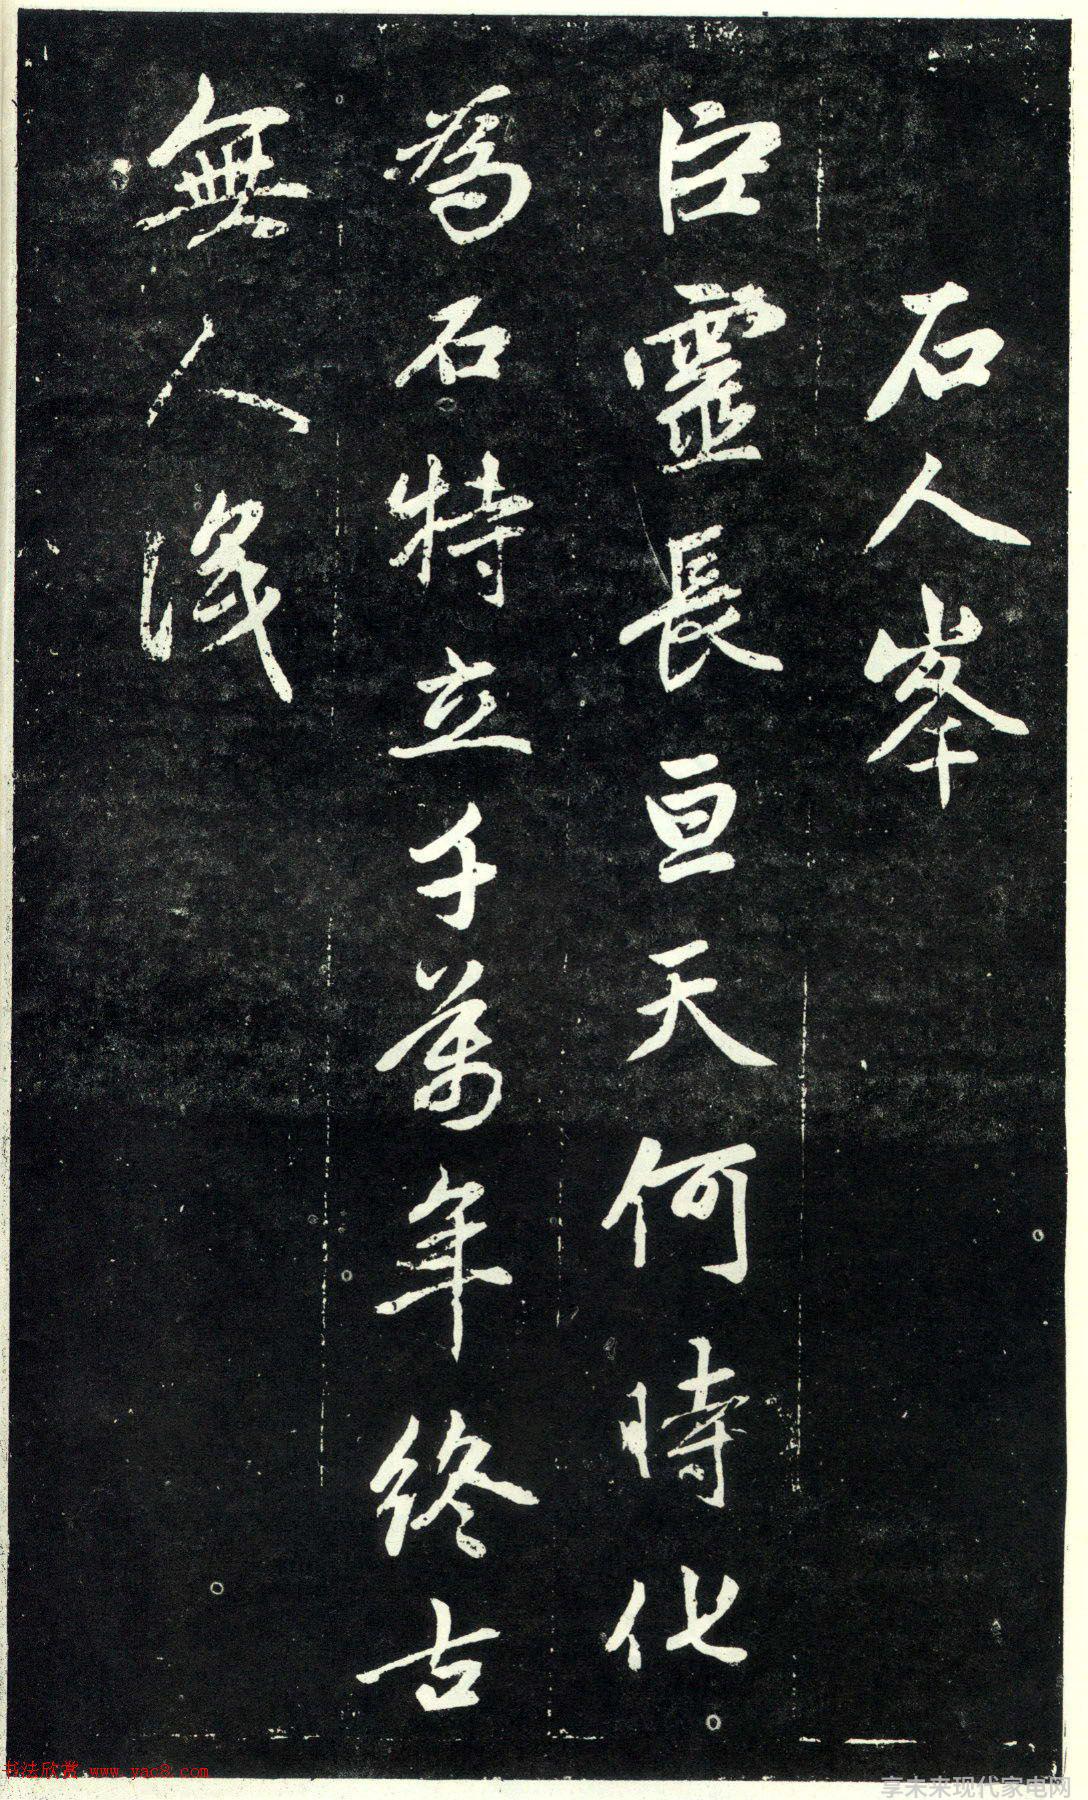 石人峯
巨靈長亘天何時化
為石特立千萬年終古
無人識
书法欣赏 www.yac8.com
享未来现代家电网